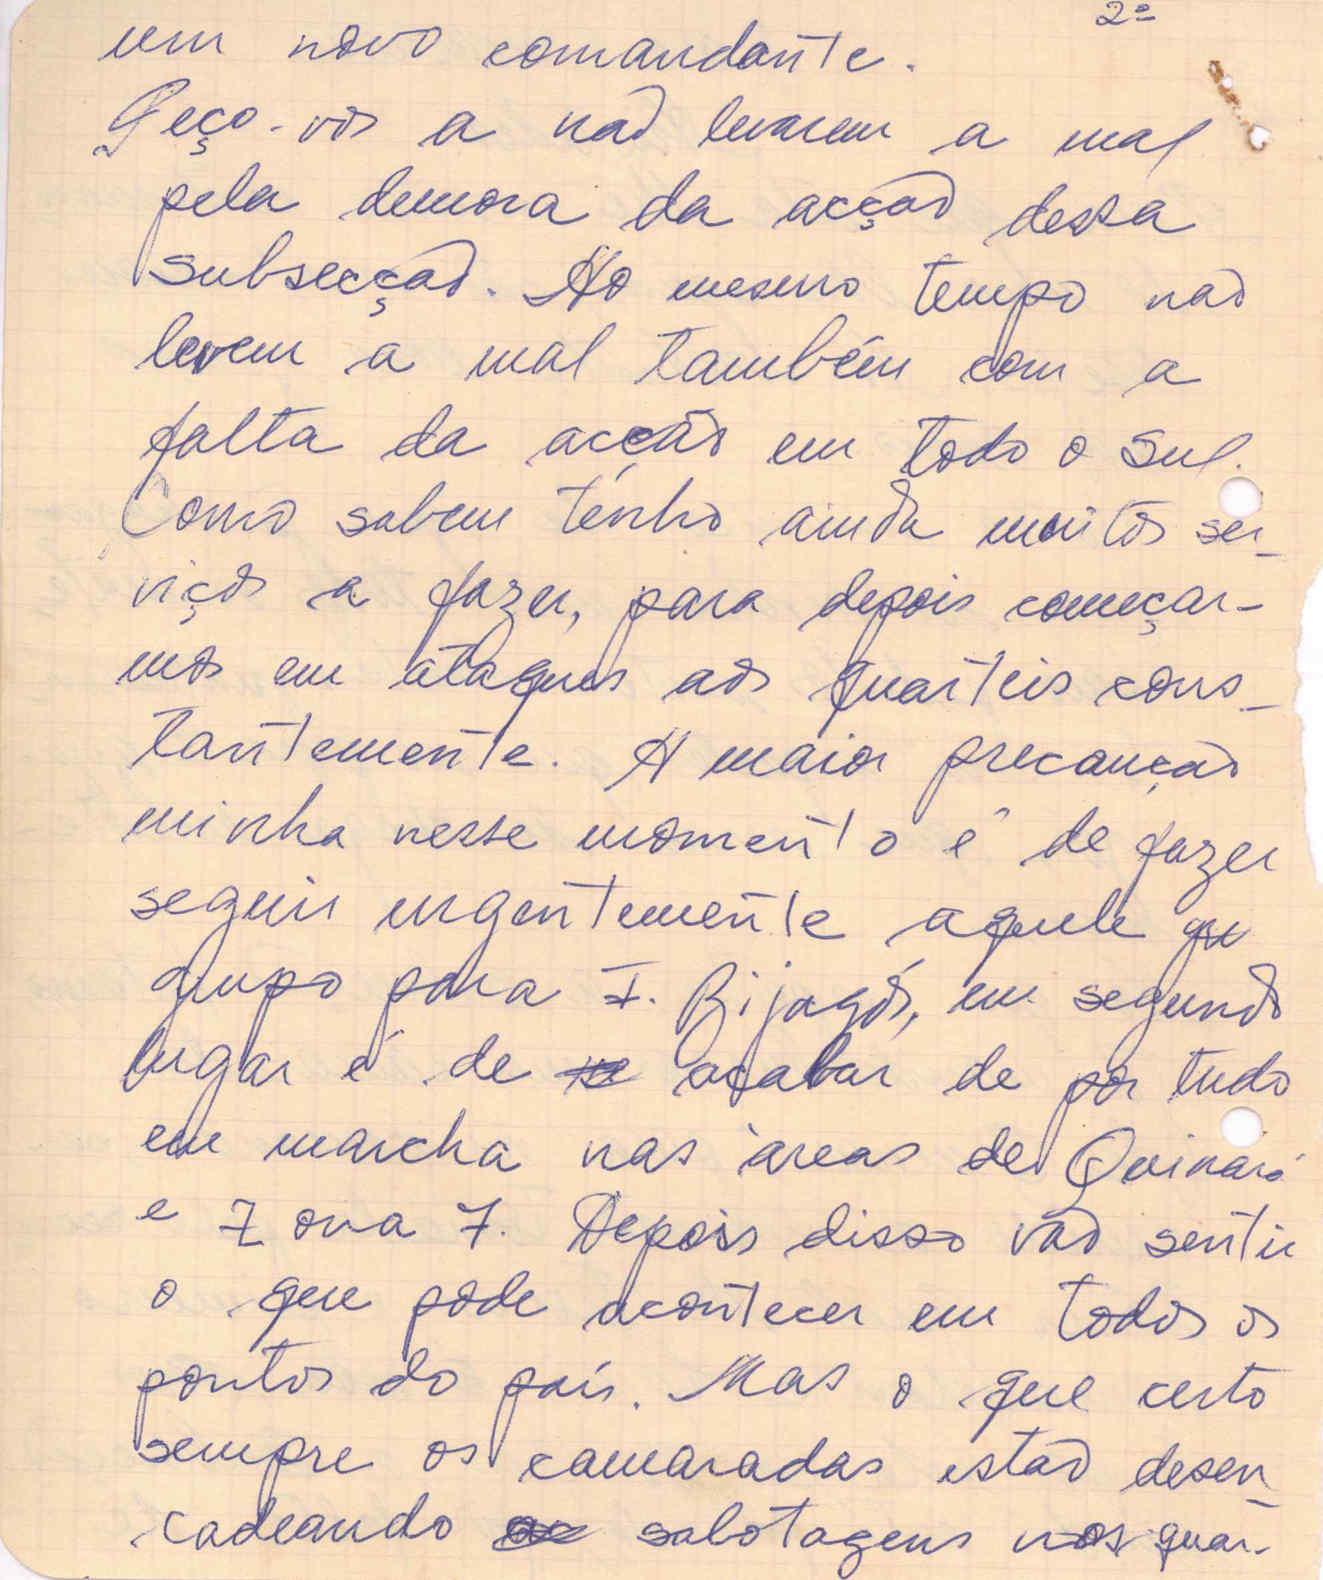 2º
um novo comandante.
Peço-vos a não levarem a mal
pela demora da acção dessa
subsecção. Ao mesmo tempo não
levem a mal também com a
falta da acção em todo o Sul.
Como sabem tenho ainda muitos ser-
viços a fazer, para depois começar-
mos em ataques aos quarteis cons-
tantemente. A maior precaução
minha nesse momento é de fazer
seguir urgentemente aquele gu
grupo para I. Bijagós, em segundo
lugar é de acabar de pôr tudo
em marcha nas àreas de Quinará
e Zona 7. Depois disso vão sentir
o que pode acontecer em todos os
pontos do país. Mas o que certo
sempre os camaradas estão desen-
cadeando sabotagens nos quar-